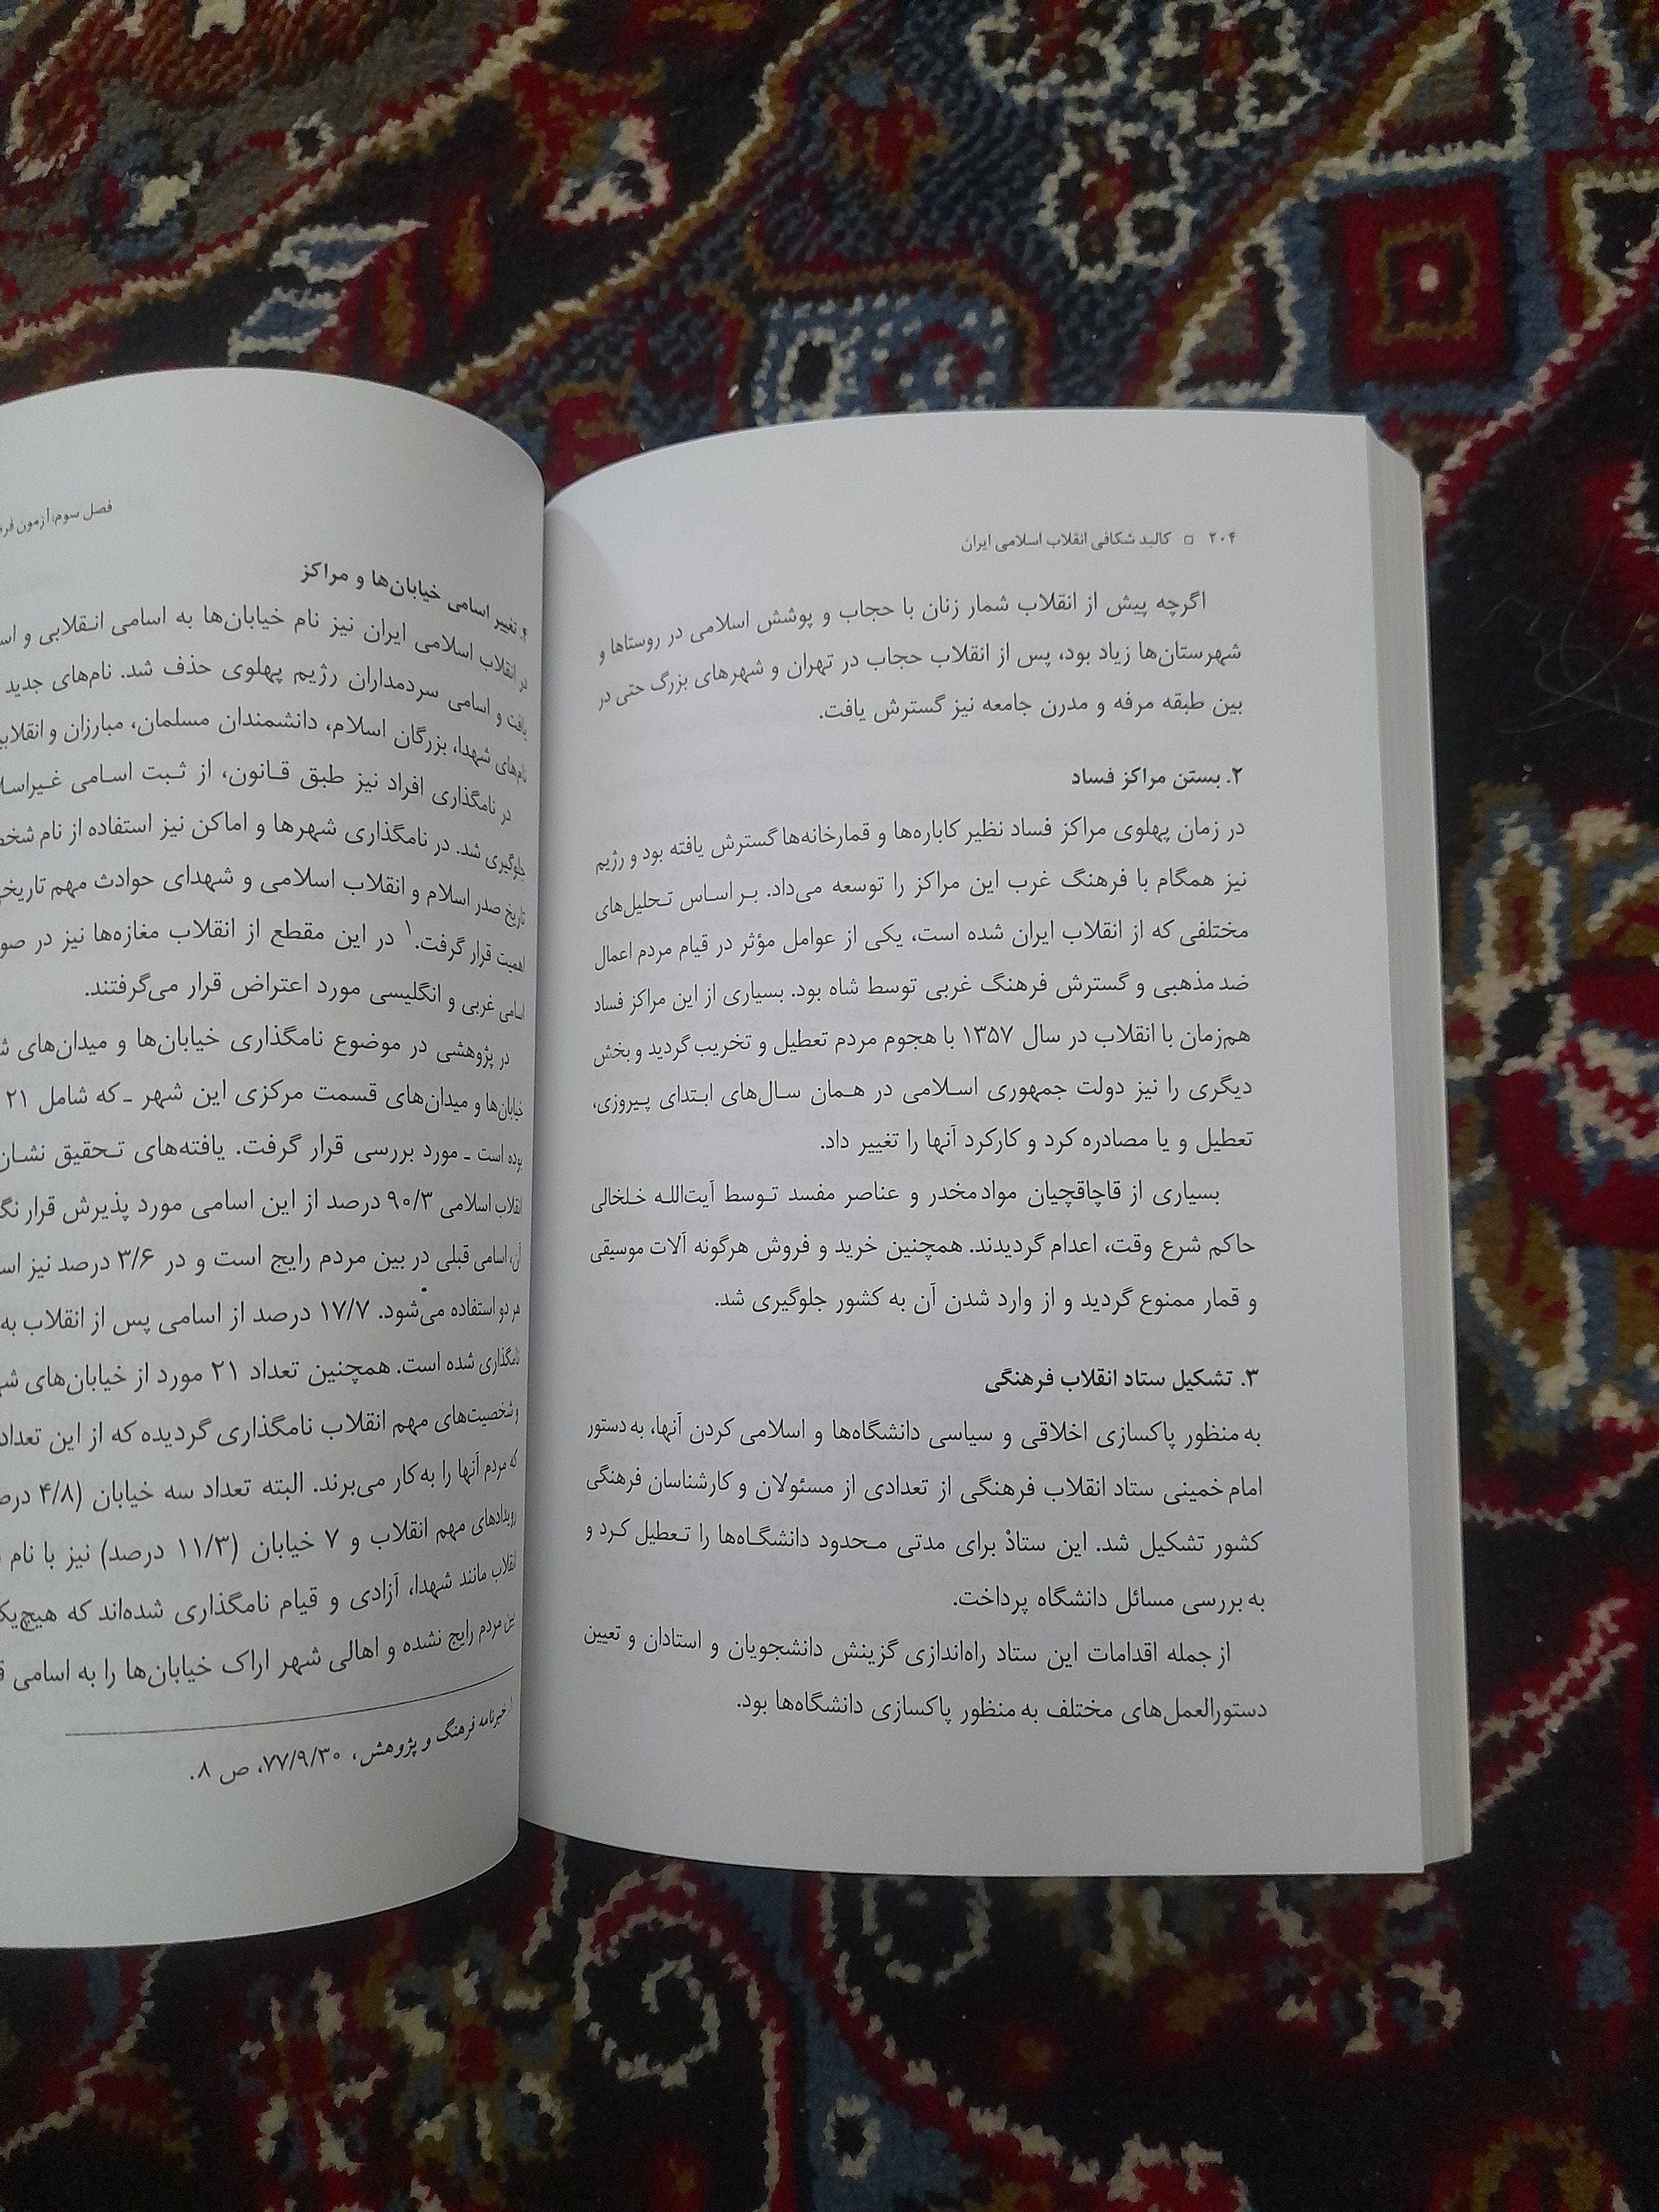 ۲۰۴ □ کالبد شکافی انقلاب اسلامی ایران
اگرچه پیش از انقلاب شمار زنان با حجاب و پوشش اسلامی در روستاها و
شهرستان‌ها زیاد بود، پس از انقلاب حجاب در تهران و شهرهای بزرگ حتی در
بین طبقه مرفه و مدرن جامعه نیز گسترش یافت.
۲. بستن مراکز فساد
در زمان پهلوی مراکز فساد نظیر کاباره‌ها و قمارخانه‌ها گسترش یافته بود و رژیم
نیز همگام با فرهنگ غرب این مراکز را توسعه می‌داد. بر اساس تحلیل‌های
مختلفی که از انقلاب ایران شده است، یکی از عوامل مؤثر در قیام مردم اعمال
ضد مذهبی و گسترش فرهنگ غربی توسط شاه بود. بسیاری از این مراکز فساد
هم‌زمان با انقلاب در سال ۱۳۵۷ با هجوم مردم تعطیل و تخریب گردید و بخش
دیگری را نیز دولت جمهوری اسلامی در همان سال‌های ابتدای پیروزی،
تعطیل و یا مصادره کرد و کارکرد آنها را تغییر داد.
بسیاری از قاچاقچیان مواد مخدر و عناصر مفسد توسط آیت‌الله خلخالی
حاکم شرع وقت، اعدام گردیدند. همچنین خرید و فروش هرگونه آلات موسیقی
و قمار ممنوع گردید و از وارد شدن آن به کشور جلوگیری شد.
۳. تشکیل ستاد انقلاب فرهنگی
به منظور پاکسازی اخلاقی و سیاسی دانشگاه‌ها و اسلامی کردن آنها، به دستور
امام خمینی ستاد انقلاب فرهنگی از تعدادی از مسئولان و کارشناسان فرهنگی
کشور تشکیل شد. این ستادْ برای مدتی محدود دانشگاه‌ها را تعطیل کرد و
به بررسی مسائل دانشگاه پرداخت.
از جمله اقدامات این ستاد راه‌اندازی گزینش دانشجویان و استادان و تعیین
دستورالعمل‌های مختلف به منظور پاکسازی دانشگاه‌ها بود.
فصل سوم: آزمون
۴. تغییر اسامی خیابان‌ها و مراکز
در انقلاب اسلامی ایران نیز نام خیابان‌ها به اسامی انقلابی و
یافت و اسامی سردمداران رژیم پهلوی حذف شد. نام‌های جدید
نام‌های شهدا، بزرگان اسلام، دانشمندان مسلمان، مبارزان و
در نامگذاری افراد نیز طبق قانون، از ثبت اسامی
جلوگیری شد. در نامگذاری شهرها و اماکن نیز استفاده از نام
تاریخ صدر اسلام و انقلاب اسلامی و شهدای حوادث مهم
اهمیت قرار گرفت.۱ در این مقطع از انقلاب مغازه‌ها نیز در
اسامی غربی و انگلیسی مورد اعتراض قرار می‌گرفتند.
در پژوهشی در موضوع نامگذاری خیابان‌ها و میدان‌های
خیابان‌ها و میدان‌های قسمت مرکزی این شهر ـ که شامل ۲۱
بوده است ـ مورد بررسی قرار گرفت. یافته‌های تحقیق
انقلاب اسلامی ۹۰/۳ درصد از این اسامی مورد پذیرش قرار
آن، اسامی قبلی در بین مردم رایج است و در ۳/۶ درصد نیز
هر دو استفاده می‌شود. ۱۷/۷ درصد از اسامی پس از انقلاب به
نامگذاری شده است. همچنین تعداد ۲۱ مورد از خیابان‌های
و شخصیت‌های مهم انقلاب نامگذاری گردیده که از این تعداد
که مردم آنها را به کار می‌برند. البته تعداد سه خیابان (۴/۸
رویدادهای مهم انقلاب و ۷ خیابان (۱۱/۳ درصد) نیز با نام
انقلاب مانند شهدا، آزادی و قیام نامگذاری شده‌اند که
بین مردم رایج نشده و اهالی شهر اراک خیابان‌ها را به اسامی
۱. خبرنامه فرهنگ و پژوهش، ۷۷/۹/۳۰، ص ۸.